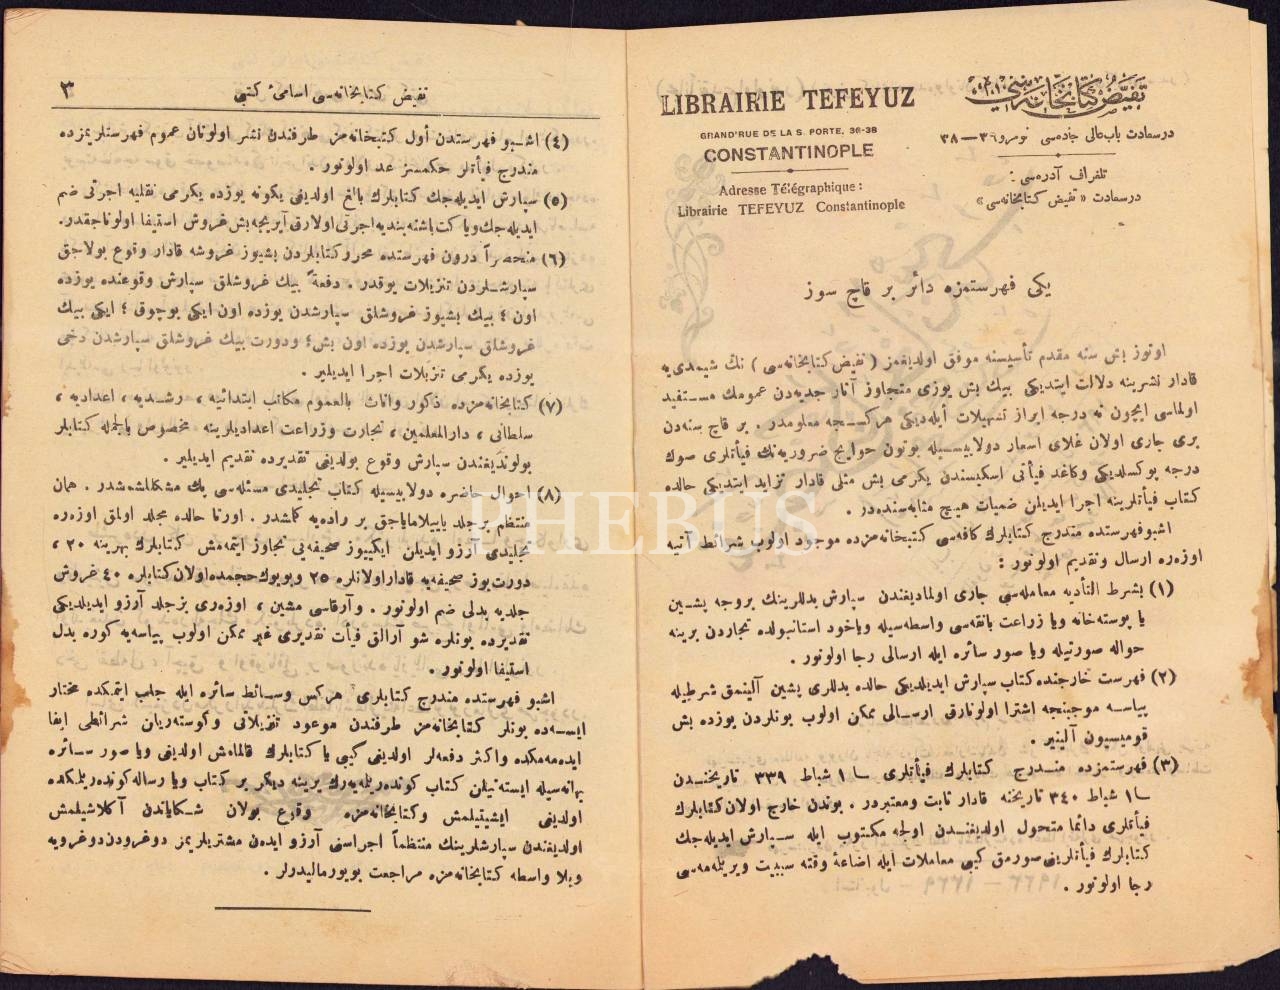 LIBRAIRIE TEFEYUZ
GRAND'RUE DE LA S. PORTE, 36-38
CONSTANTINOPLE
Adresse Télégraphique:
Librairie TEFEYUZ Constantinople
تفیض كتابخانه‌سی
درسعادت باب‌عالی جاده‌سی نومرو ٣٦—٣٨
تلغراف آدره‌سی:
درسعادت «تفیض كتابخانه‌سی»
یكی فهرستمزه دائر بر قاچ سوز
اوتوز بش سنه مقدم تأسیسنه موفق اولدیغمز (تفیض كتابخانه‌سی) نك شیمدی‌یه
قادار نشرینه دلالت ایتدیكی بیك بش یوزی متجاوز آثار جدیه‌دن عمومك مستفید
اولماسی ایچون نه درجه ابراز تسهیلات ایله‌دیكی هركسجه معلومدر. بر قاچ سنه‌دن
بری جاری اولان غلای اسعار دولاییسیله بوتون حوایج ضروریه‌نك فیأتلری صوك
درجه یوكسلدیكی وكاغد فیأتی اسكیسندن یكرمی بش مثلی قادار تزاید ایتدیكی حالده
كتاب فیأتلرینه اجرا ایدیلن ضمیات هیچ مثابه‌سنده‌در.
اشبو فهرستده مندرج كتابلرك كافه‌سی كتبخانه‌مزده موجود اولوب شرائط آتیه
اوزه‌ره ارسال وتقدیم اولونور:
(١) بشرط التأدیه معامله‌سی جاری اولمادیغندن سپارش بدللرینك بروجه پشین
یا پوسته‌خانه ویا زراعت بانقه‌سی واسطه‌سیله ویاخود استانبولده تجاردن برینه
حواله صورتیله ویا صور سائره ایله ارسالی رجا اولونور.
(٢) فهرست خارجنده كتاب سپارش ایدیلدیكی حالده بدللری پشین آلینمق شرطیله
پیاسه موجبنجه اشترا اولونارق ارسالی ممكن اولوب بونلردن یوزده بش
قومیسیون آلینیر.
(٣) فهرستمزده مندرج كتابلرك فیأتلری — ١ شباط ٣٣٩ تاریخندن
— ١ شباط ٣٤٠ تاریخنه قادار ثابت ومعتبردر. بوندن خارج اولان كتابلرك
فیأتلری دائما متحول اولدیغندن اولجه مكتوب ایله سپارش ایدیله‌جك
كتابلرك فیأتلرینی صورمق كبی معاملات ایله اضاعهٔ وقته سببیت ویریلمه‌مه‌سی
رجا اولونور.
تفیض كتابخانه‌سی اسامیٔ كتبی
٣
(٤) اشبو فهرستدن أول كتبخانه‌مز طرفندن نشر اولونان عموم فهرستلریمزده
مندرج فیأتلر حكمسز عد اولونور.
(٥) سپارش ایدیله‌جك كتابلرك بالغ اولدیغی یكونه یوزده یكرمی نقلیه اجرتی ضم
ایدیله‌جك ویا كت باشنه بندیه اجرتی اولارق آیریجه بش غروش استیفا اولوناجقدر.
(٦) منحصراً درون فهرستده محرر كتابلردن بشیوز غروشه قادار وقوع بولاجق
سپارشلردن تنزیلات یوقدر. دفعةً بیك غروشلق سپارش وقوعنده یوزده
اون؛ بیك بشیوز غروشلق سپارشدن یوزده اون ایكی بوچوق؛ ایكی بیك
غروشلق سپارشدن یوزده اون بش؛ ودورت بیك غروشلق سپارشدن دخی
یوزده یكرمی تنزیلات اجرا ایدیلیر.
(٧) كتابخانه‌مزده ذكور واناث بالعموم مكاتب ابتدائیه، رشدیه، اعدادیه،
سلطانی، دارالمعلمین، تجارت وزراعت اعدادیلرینه مخصوص بالجمله كتابلر
بولوندیغندن سپارش وقوع بولدیغی تقدیرده تقدیم ایدیلیر.
(٨) احوال حاضره دولاییسیله كتاب تجلیدی مسئله‌سی پك مشكللشمشدر. همان
منتظم برجلد یاپیلامایاجق بر راده‌یه كلمشدر. اورتا حالده مجلد اولمق اوزه‌ره
تجلیدی آرزو ایدیلن ایكییوز صحیفه‌یی تجاوز ایتمه‌مش كتابلرك بهرینه ٢٠،
دورت یوز صحیفه‌یه قادار اولانلره ٢٥ وبویوك حجمده اولان كتابلره ٤٠ غروش
جلدیه بدلی ضم اولونور. وآرقاسی مشین، اوزه‌ری بزجلد آرزو ایدیلدیكی
تقدیرده بونلره شو آرالق فیأت تقدیری غیر ممكن اولوب پیاسه‌یه كوره بدل
استیفا اولونور.
اشبو فهرستده مندرج كتابلری هركس وسائط سائره ایله جلب ایتمكده مختار
ایسه‌ده بونلر كتابخانه‌مز طرفندن موعود تنزیلاتی وكوسته‌ریلن شرائطی ایفا
ایده‌مه‌مكده واكثر دفعه‌لر اولدیغی كبی یا كتابلرك قالمامش اولدیغی ویا صور سائره
بهانه‌سیله ایسته‌نیلن كتاب كونده‌ریلمه‌یه‌رك یرینه دیكر بر كتاب ویا رساله كونده‌ریلمكده
اولدیغی ایشیتیلمش وكتابخانه‌مزه وقوع بولان شكایاتدن آكلاشیلمش
اولدیغندن سپارشلرینك منتظماً اجراسنی آرزو ایدن مشتریلریمز دوغرودن دوغرویه
وبلا واسطه كتابخانه‌مزه مراجعت بویورمالیدرلر.
PHEBUS